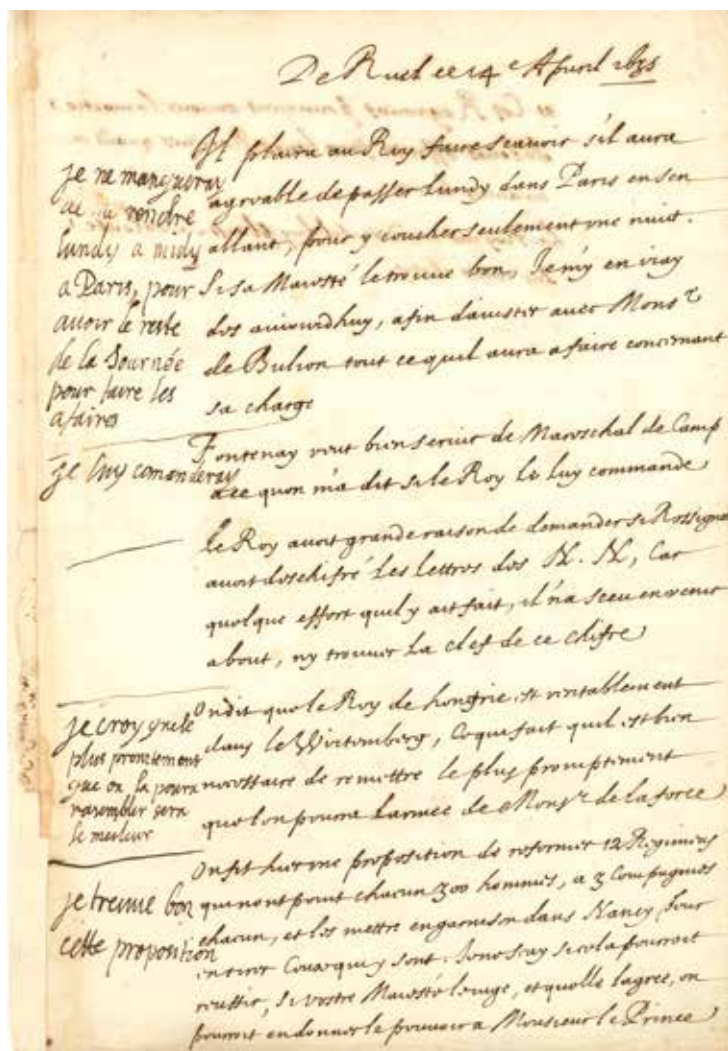 De Ruel ce 14e Apuril 1635
Il plaira au Roy faire scauoir s'il aura
agreable de passer Lundy dans Paris en s'en
allant, pour y coucher seulement une nuit.
Si sa Maiesté le trouue bon, Je m'y en iray
des auiourdhuy, afin d'aiuster auec Monsr
de Bulion tout ce quil aura a faire concernant
sa charge
je ne manqueray
de me rendre
lundy a midy
a Paris, pour
auoir le reste
de la Journée
pour faire les
afaires
Fontenay veut bien seruir de Mareschal de Camp
a ce quon m'a dit si le Roy le luy commande
je luy comanderay
Le Roy auoit grande raison de demander si Rossignol
auoit deschifré les lettres des N. N, Car
quelque effort quil y ait fait, il n'a sceu en venir
about, ny trouuer la clef de ce chifre
On dit que le Roy de hongrie est veritablement
dans le Wirtemberg, Ce qui fait quil est bien
necessaire de remettre le plus promptement
que lon pourra l'armée de Monsr de la force
je croy que le
plus promtement
que on la poura
rasembler sera
le meileur
On fit hier une proposition de reformer 12 Regimens
qui nont point chacun 300 hommes, a 3 Compagnies
chacun, et les mettre en garnison dans Nancy, pour
en tirer Ceux qui y sont. Je ne scay si cela pourroit
reussir, Si vostre Maiesté le iuge, et quelle l'agrée, on
pourroit en donner le pouuoir a Monsieur le Prince
je treuue bon
cette proposition